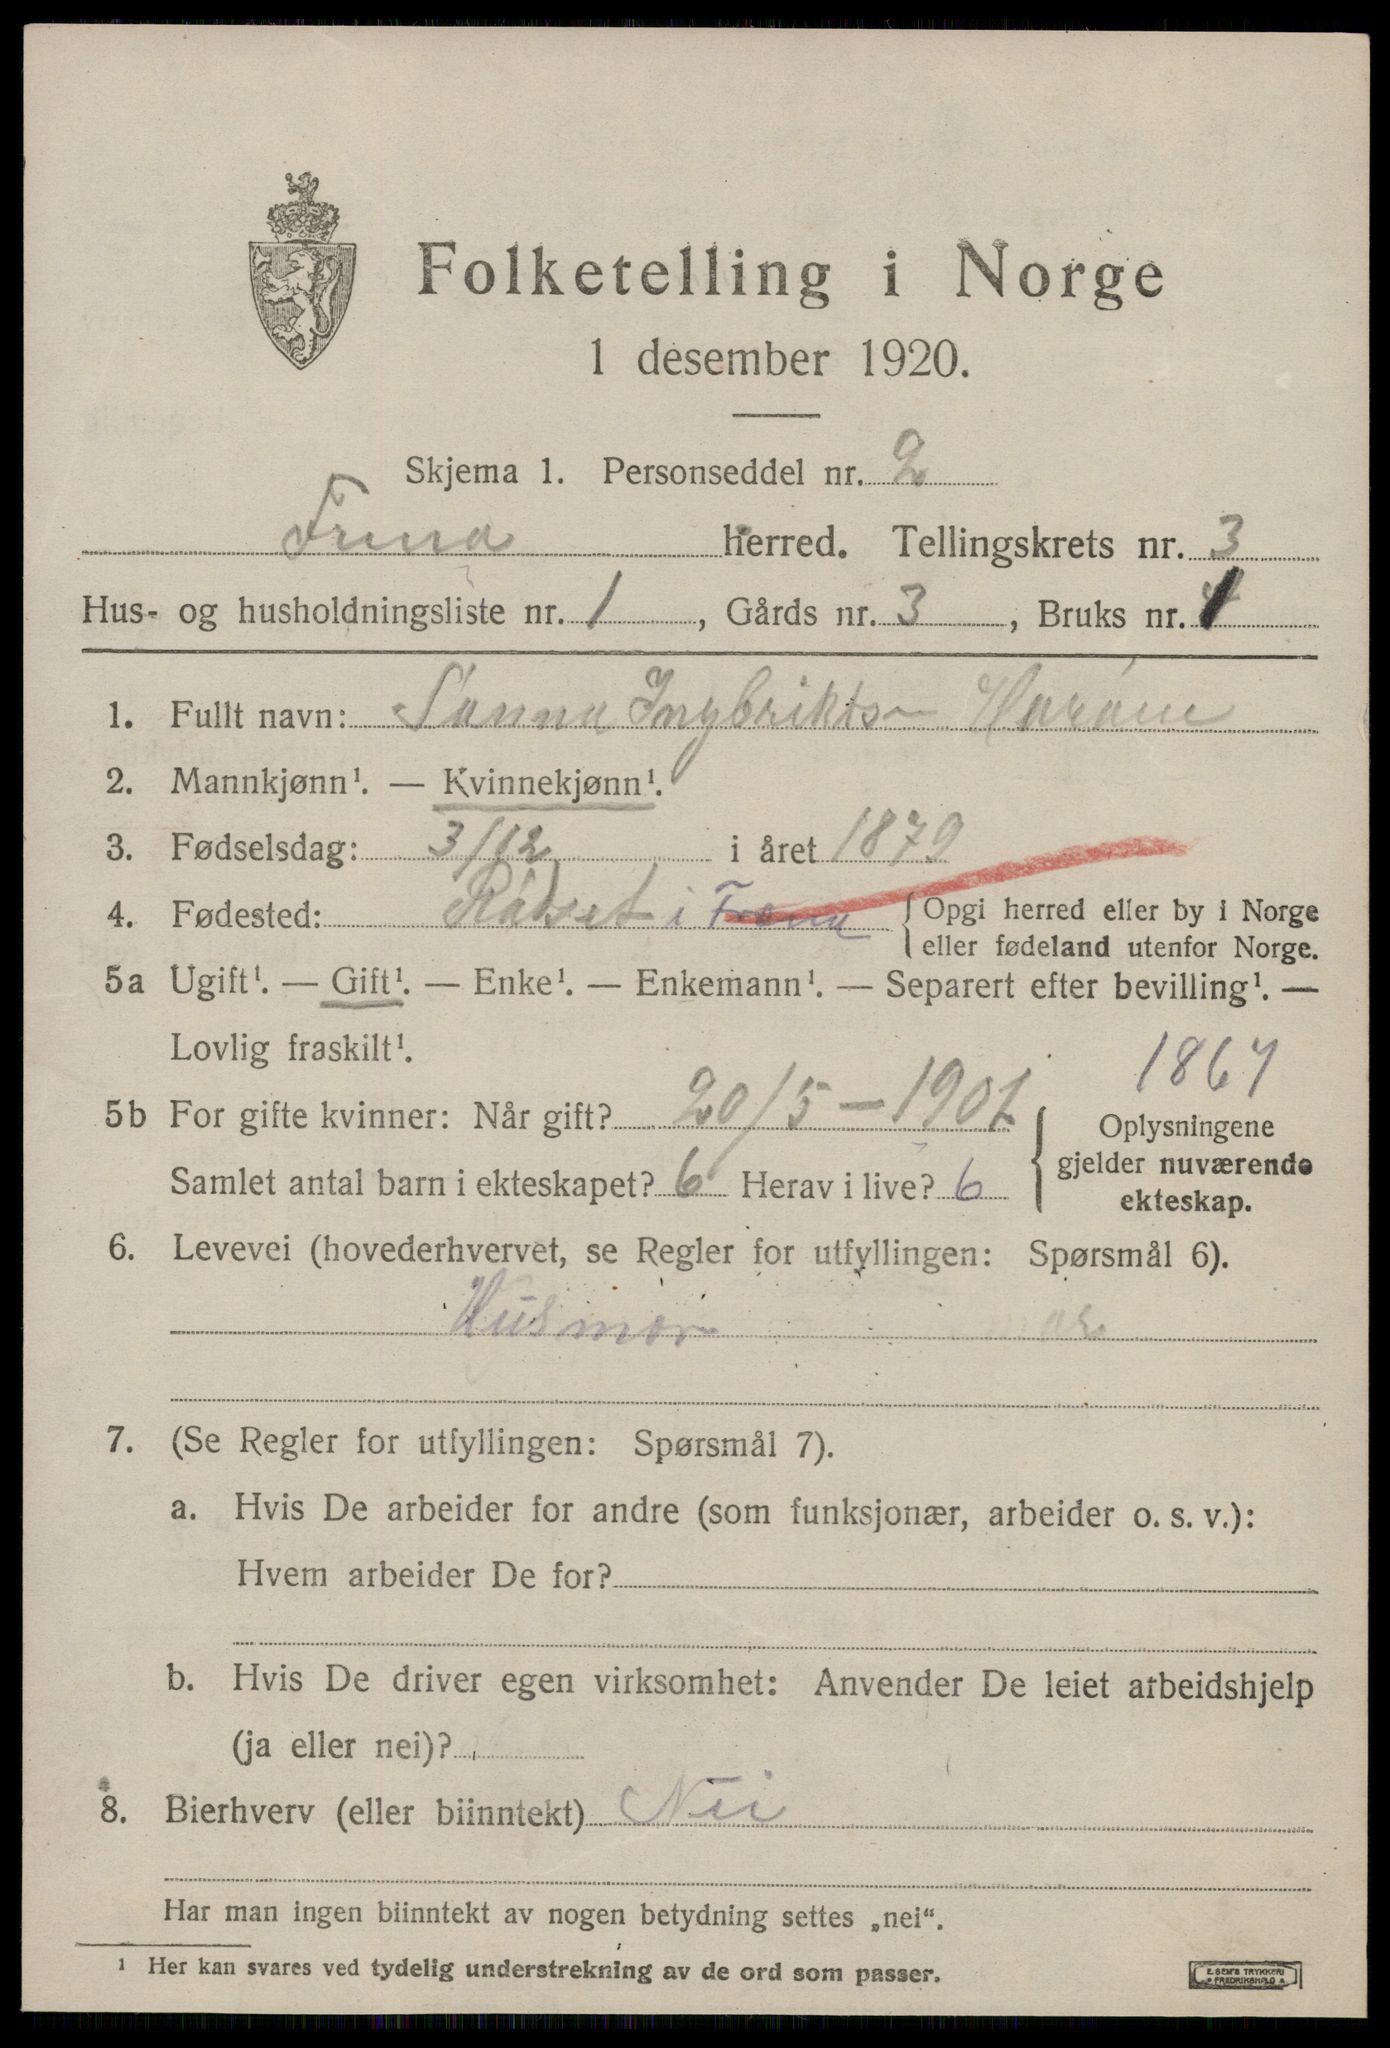 Folketelling i Norge
1 desember 1920.
Skjema 1. Personseddel nr. 2
Frena herred. Tellingskrets nr. 3
Hus- og husholdningsliste nr. 1, Gårds nr. 3, Bruks nr. 1
1. Fullt navn: Sanna Ingbrikts
2. Mannkjønn¹. — Kvinnekjønn¹.
3. Fødselsdag: 3/12 i året 1879
4. Fødested: Rødset i Fræna { Opgi herred eller by i Norge
eller fødeland utenfor Norge.
5a Ugift¹. — Gift¹. — Enke¹. — Enkemann¹. — Separert efter bevilling¹. —
Lovlig fraskilt¹.
1867
5b For gifte kvinner: Når gift? 20/5 – 1901
Samlet antal barn i ekteskapet? 6 Herav i live? 6
{ Oplysningene
gjelder nuværende
ekteskap.
6. Levevei (hovederhvervet, se Regler for utfyllingen: Spørsmål 6).
Husmor
7. (Se Regler for utfyllingen: Spørsmål 7).
a. Hvis De arbeider for andre (som funksjonær, arbeider o. s. v.):
Hvem arbeider De for?
b. Hvis De driver egen virksomhet: Anvender De leiet arbeidshjelp
(ja eller nei)?
8. Bierhverv (eller biinntekt) Nei
Har man ingen biinntekt av nogen betydning settes „nei“.
¹ Her kan svares ved tydelig understrekning av de ord som passer.
E. SEM'S TRYKKERI
FREDRIKSHALD